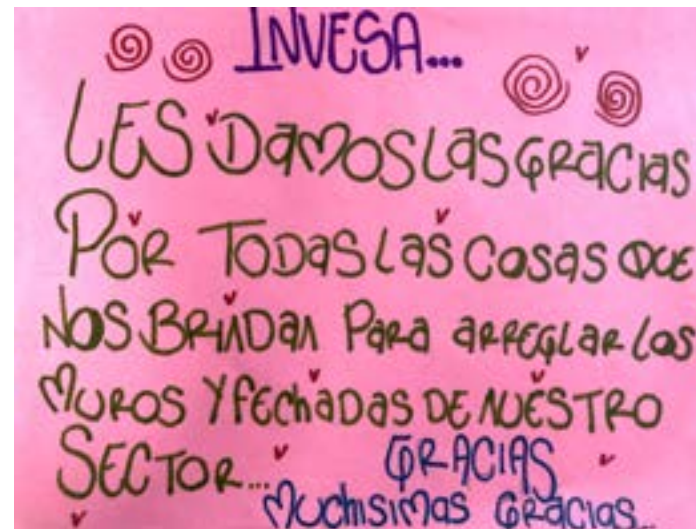 INVESA...
LES DAMOS LAS GRACIAS
POR TODAS LAS COSAS QUE
NOS BRINDAN PARA ARREGLAR LOS
MUROS Y FECHADAS DE NUESTRO
SECTOR... GRACIAS
MUCHISIMAS GRACIAS...